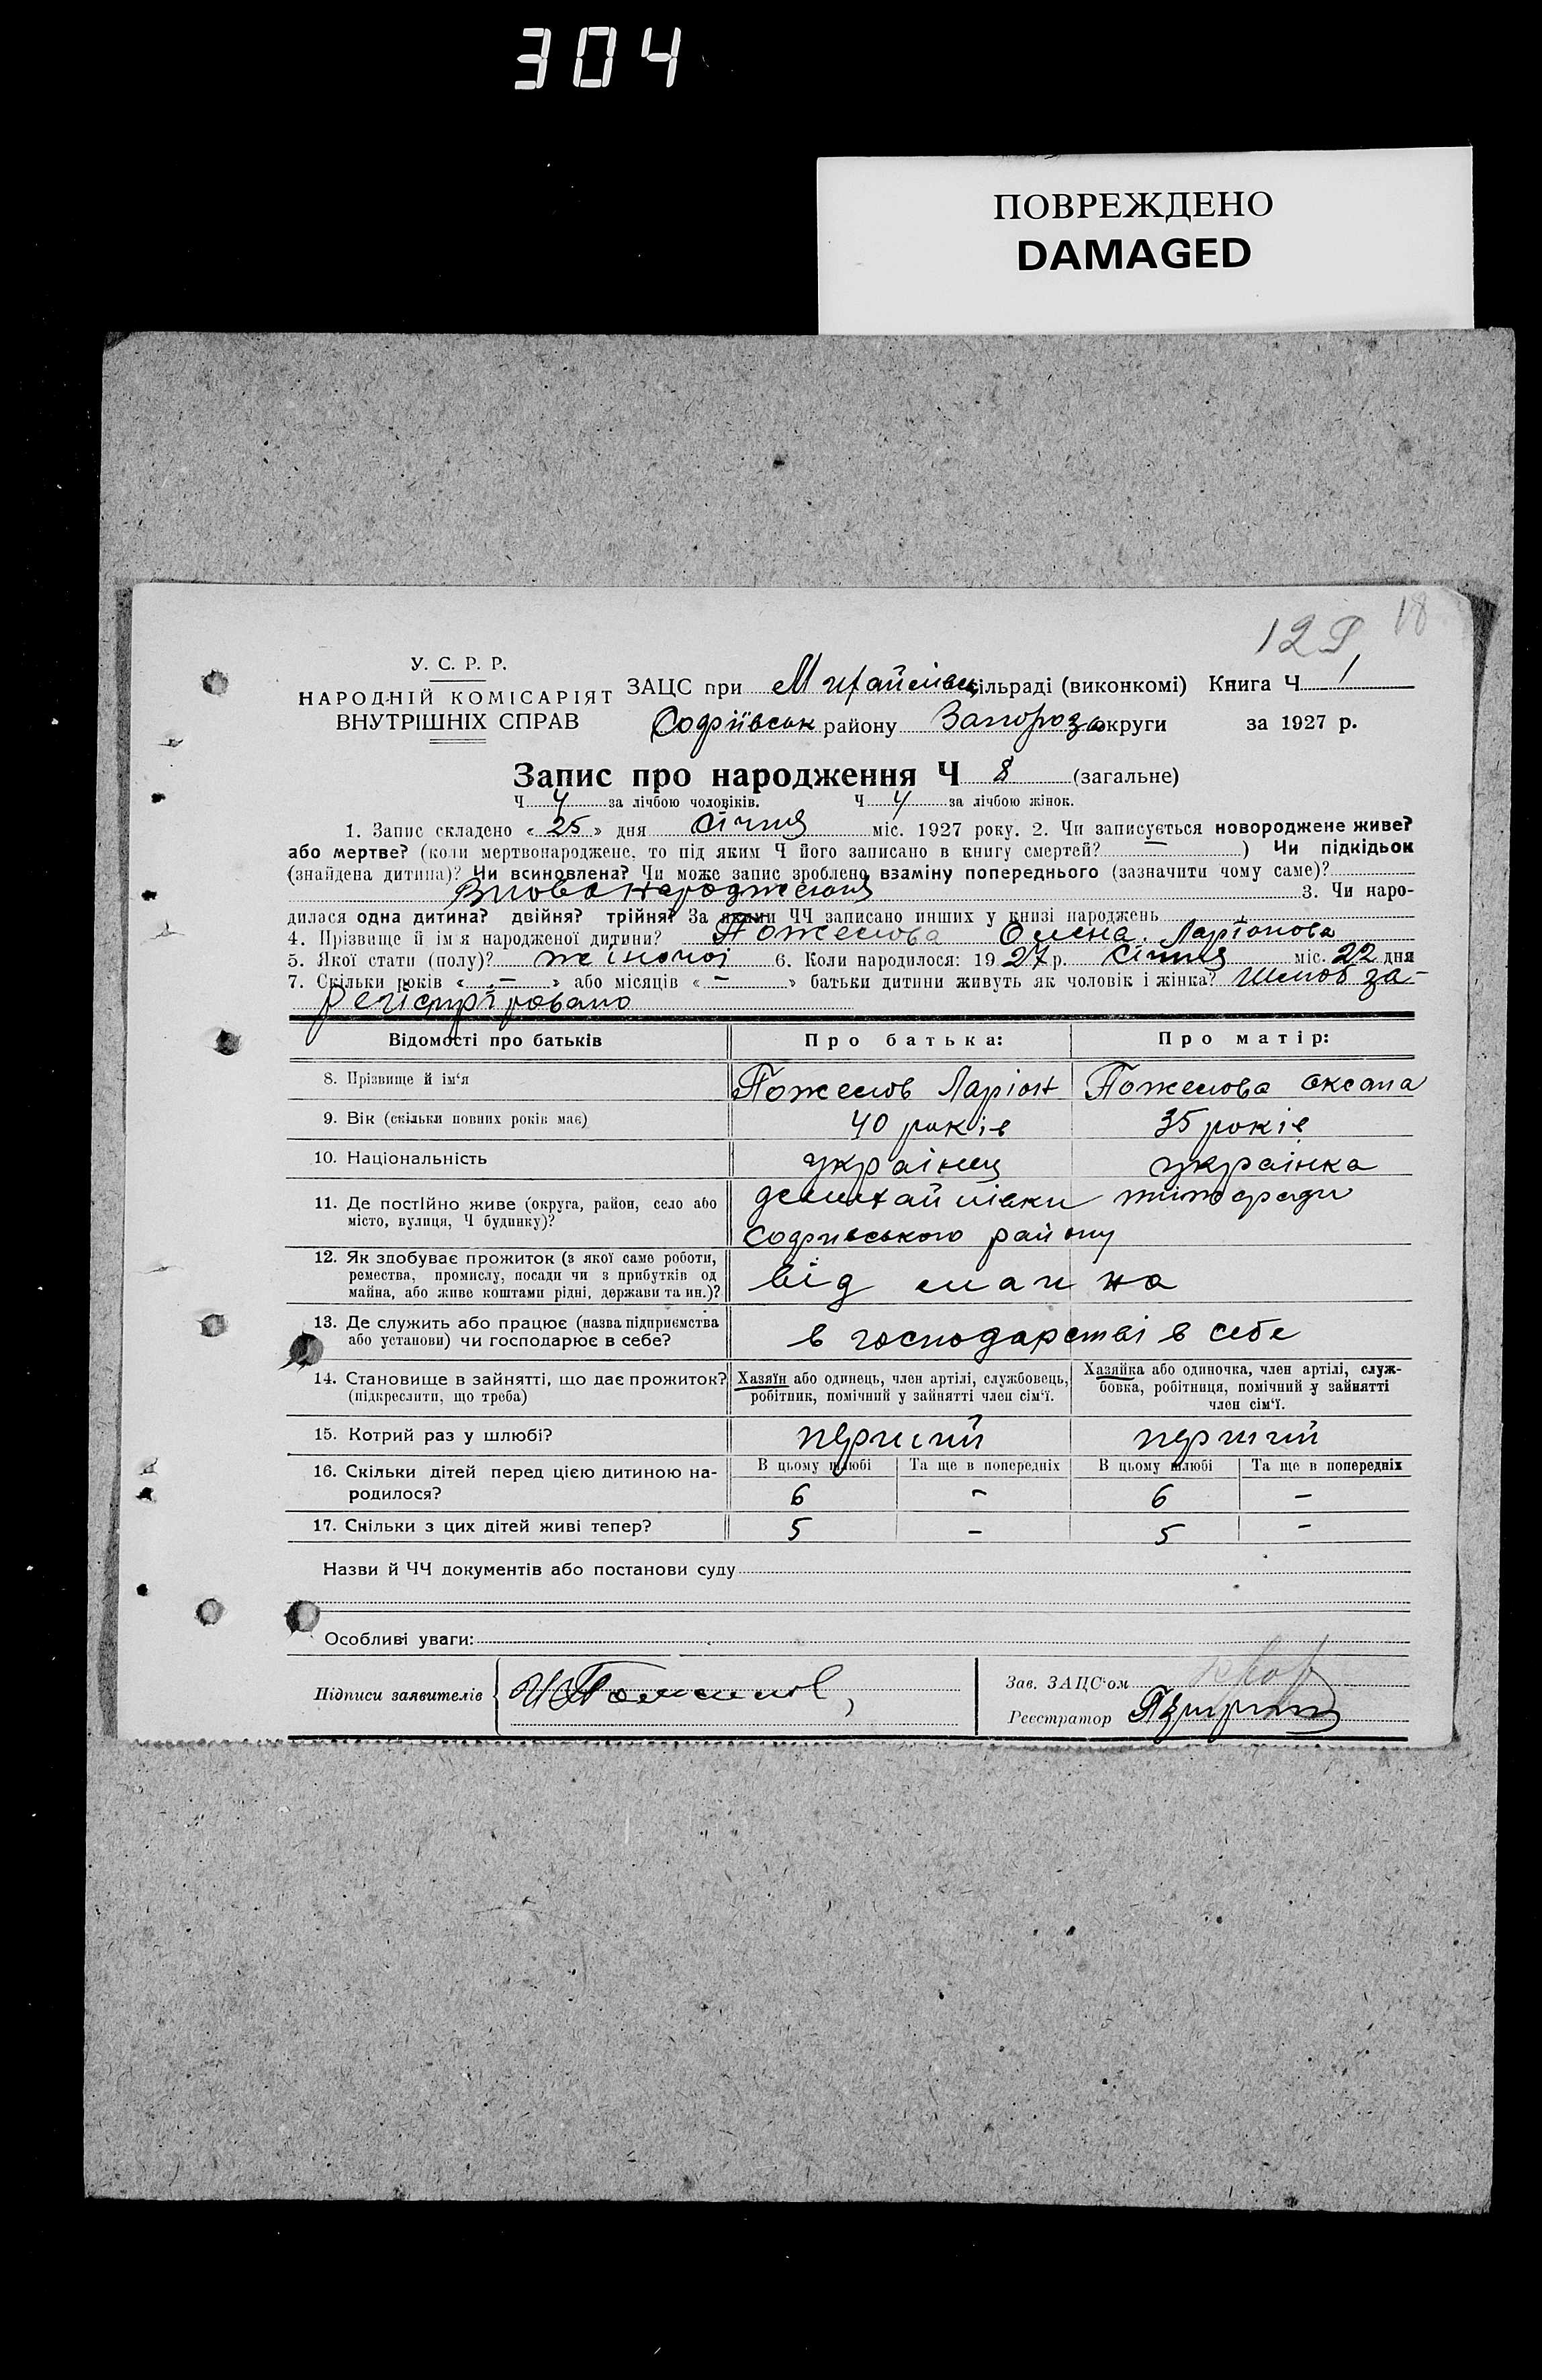 304
ПОВРЕЖДЕНО
DAMAGED
18
У. С. Р. Р.
НАРОДНІЙ КОМІСАРІЯТ
ВНУТРІШНІХ СПРАВ
ЗАЦС при Михайлівськ сільраді (виконкомі) Книга Ч 1
Софіївськ району Запорозь округи за 1927 р.
Запис про народження Ч 8 (загальне)
Ч 4 за лічбою чоловіків. Ч 4 за лічбою жінок.
1. Запис складено « 25 » дня Січня міс. 1927 року. 2. Чи записується новороджене живе?
або мертве? (коли мертвонароджене, то під яким Ч його записано в книгу смертей? — ) Чи підкідьок
(знайдена дитина)? Чи всиновлена? Чи може запис зроблено взаміну попереднього (зазначити чому саме)?
3. Чи наро-
дилася одна дитина? двійня? трійня? За якими ЧЧ записано инших у книзі народжень
4. Прізвище й ім'я народженої дитини? Пожелова Олена Ларіонова
5. Якої статі (полу)? жіночої 6. Коли народилося: 1927 р. Січня міс. 22 дня
7. Скільки років « — » або місяців « — » батьки дитини живуть як чоловік і жінка? Шлюб за-
регістріровано
Відомості про батьків Про батька: Про матір:
8. Прізвище й ім'я Пожелов Ларіон Пожелова Оксана
9. Вік (скільки повних років має) 40 років 35 років
10. Національність українец українка
11. Де постійно живе (округа, район, село або
місто, вулиця, Ч будинку)?
Софиевського району
12. Як здобуває прожиток (з якої саме роботи,
ремества, промислу, посади чи з прибутків од
майна, або живе коштами рідні, держави та ин.)?
від
13. Де служить або працює (назва підприємства
або установи) чи господарює в себе?
в господарстві в себе
14. Становище в зайнятті, що дає прожиток?
(підкреслити, що треба)
Хазяїн або одинець, член артілі, службовець,
робітник, помічний у зайнятті член сім'ї.
Хазяйка або одиночка, член артілі, служ-
бовка, робітниця, помічний у зайнятті
член сім'ї.
15. Котрий раз у шлюбі? перший перший
16. Скільки дітей перед цією дитиною на-
родилося?
В цьому шлюбі Та ще в попередніх В цьому шлюбі Та ще в попередніх
6 - 6 -
17. Скільки з цих дітей живі тепер? 5 - 5 -
Назви й ЧЧ документів або постанови суду
Особливі уваги:
Підписи заявителів
Зав. ЗАЦС'ом
Реєстратор